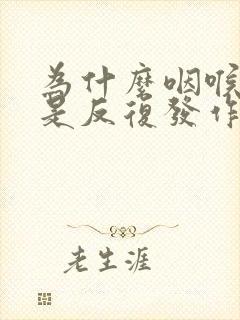 為什麼咽喉
是反復發作
老生涯